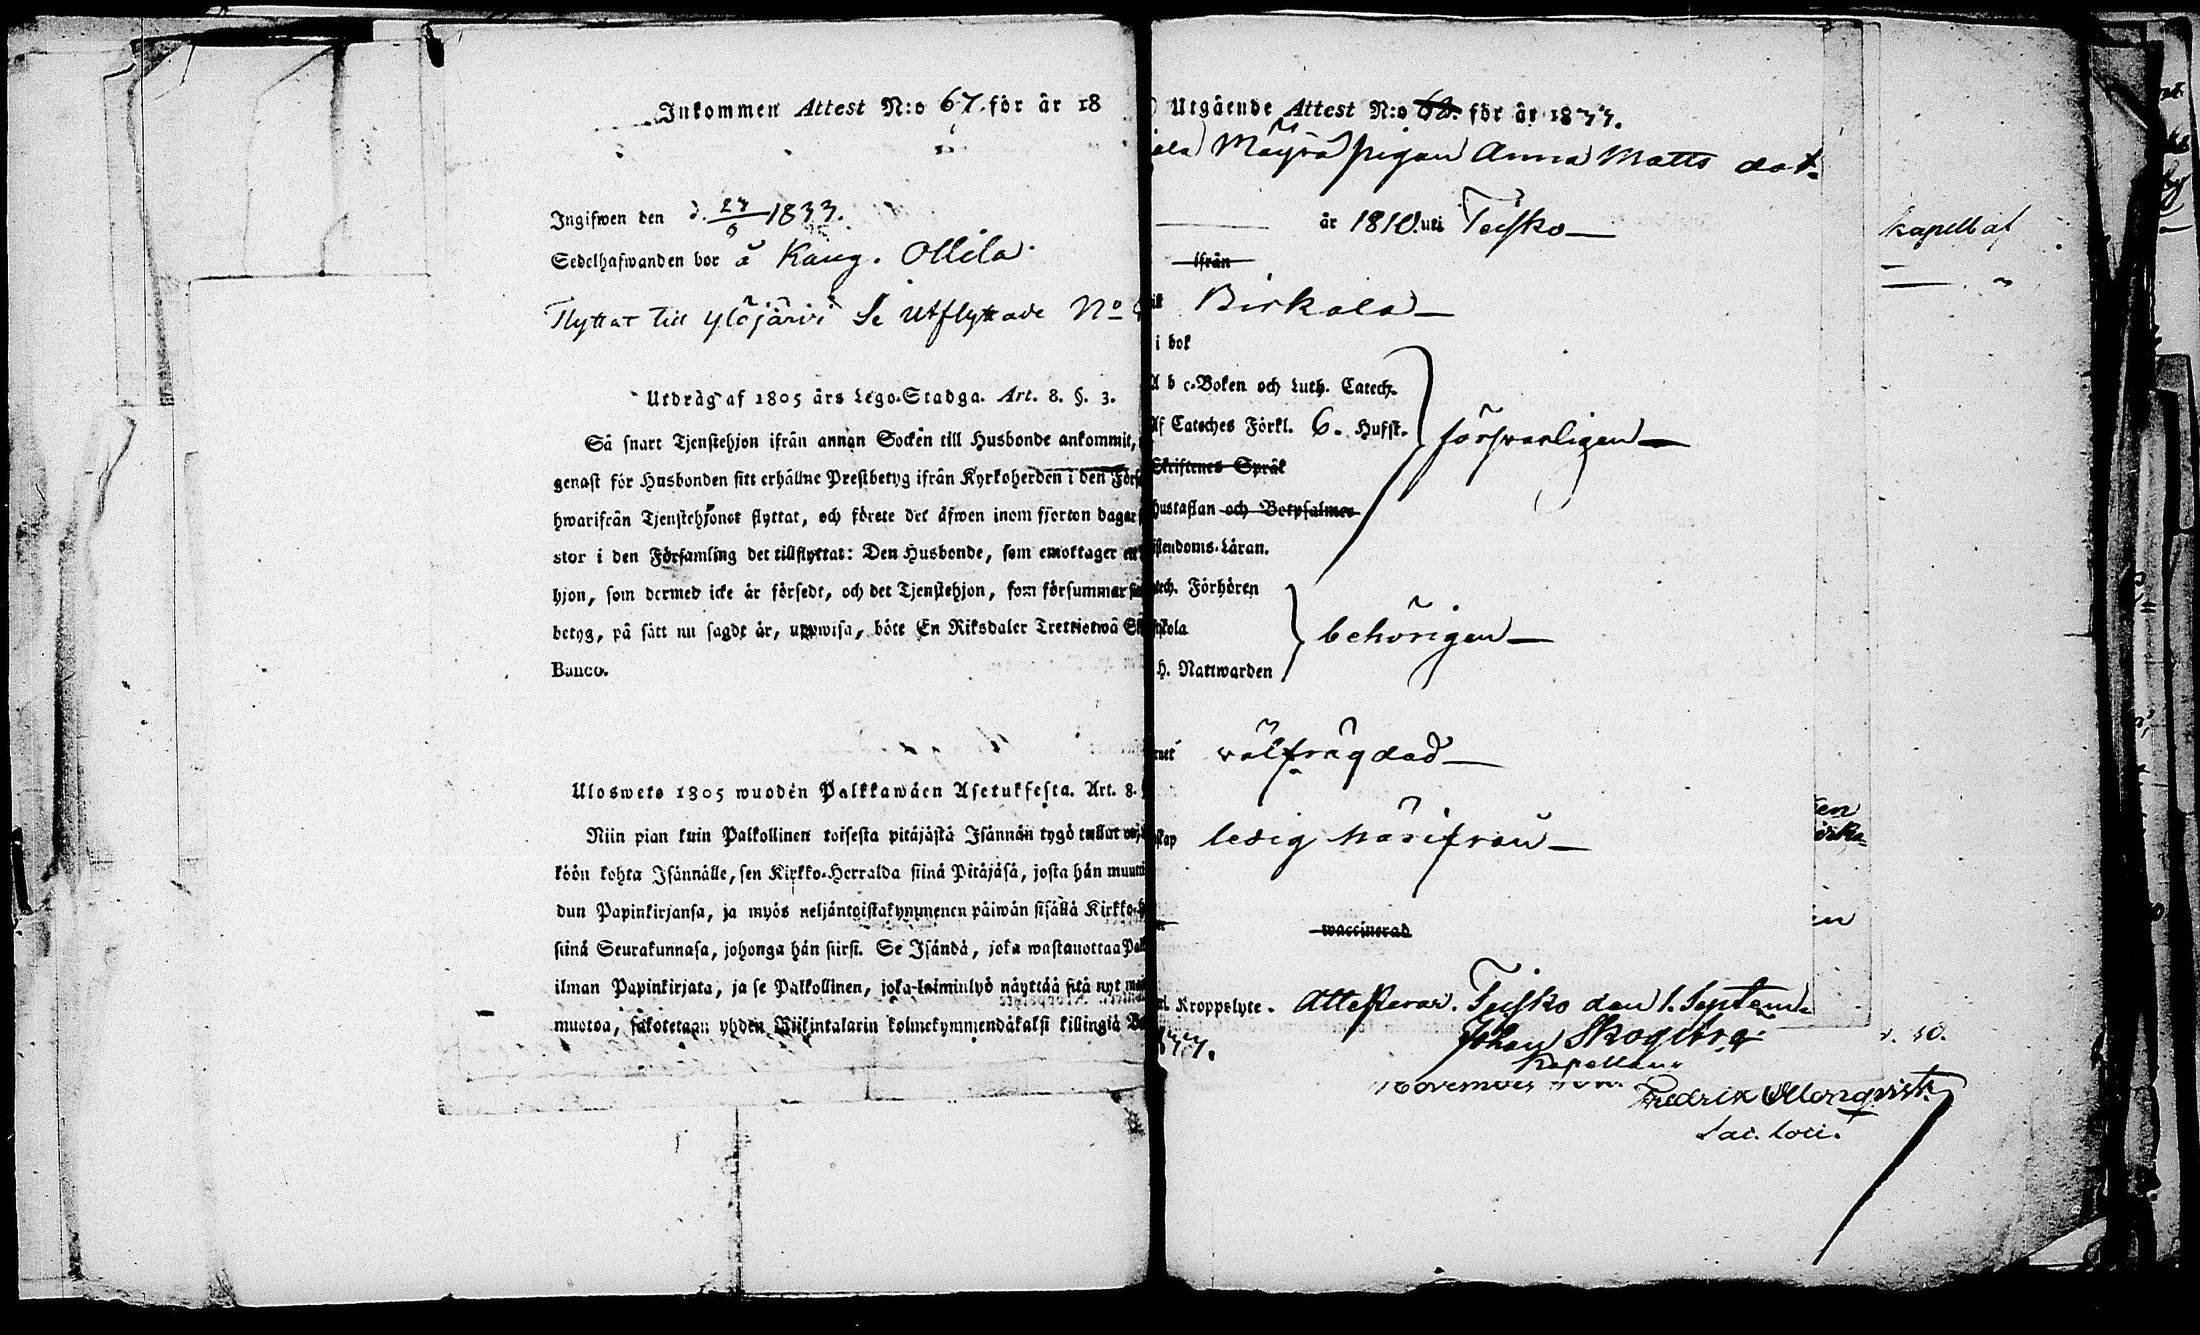 Inkommen Attest N:o 67. för år 18
Ingifwen den d. 27/6 1833.
Sedelhafwanden bor å Kang. Ollila.
Flyttat till Ylöjärvi Se Utflyttade No
Utdrag af 1805 års Lego-Stadga. Art. 8. §. 3.
Så snart Tjenstehjon ifrån annan Socken till Husbonde ankommit,
genast för Husbonden sitt erhållne Prestbetyg ifrån Kyrkoherden i den Förs
hwarifrån Tjenstehjonet flyttat, och förete det äfwen inom fjorton dagar
stor i den Församling det tillflyttat: Den Husbonde, som emottager ett
hjon, som dermed icke är försedt, och det Tjenstehjon, som försummar
betyg, på sätt nu sagdt är, uppwisa, böte En Riksdaler Trettiotwå
Banco.
Uloswets 1805 wuoden Palkkawäen Asetuksesta. Art. 8.
Niin pian kuin Palkollinen toisesta pitäjästä Isännän tygö tullut
köön kohta Isännälle, sen Kirkko-Herralda siinä Pitäjäsä, josta hän muutt
dun Papinkirjansa, ja myös neljäntoistakymmenen päiwän sisällä Kirkko-H
siinä Seurakunnasa, johonga hän siirsi. Se Isändä, joka wastanottaa Pal
ilman Papinkirjata, ja se Palkollinen, joka laiminlyö näyttää sitä nyt
muotoa, sakotetaan yhden Riikintalarin kolmekymmendäkaksi killingiä B
Utgående Attest N:o 62. för år 1833.
ala Mäyrä pigan Anna Matts dot.
år 1810. uti Teisko
ifrån
till Birkala
i bok
A b c-Boken och Luth. Catech.
Af Cateches Förkl. 6. Hufst. försvarligen
Skriftenes Språk
Hustaflan och Botpsalmer
istendoms-Läran.
tech. Förhören
skola behörigen
H. Nattwarden
rnet välfrägdad
skap ledig härifrån
waccinerad
Kroppslyte. Attesterar. Teisko den 1. Septem-
1833. Johan Skogberg
Kapellan
kapell af
en
irka-
en
November
Fredrik
Sac. loci.